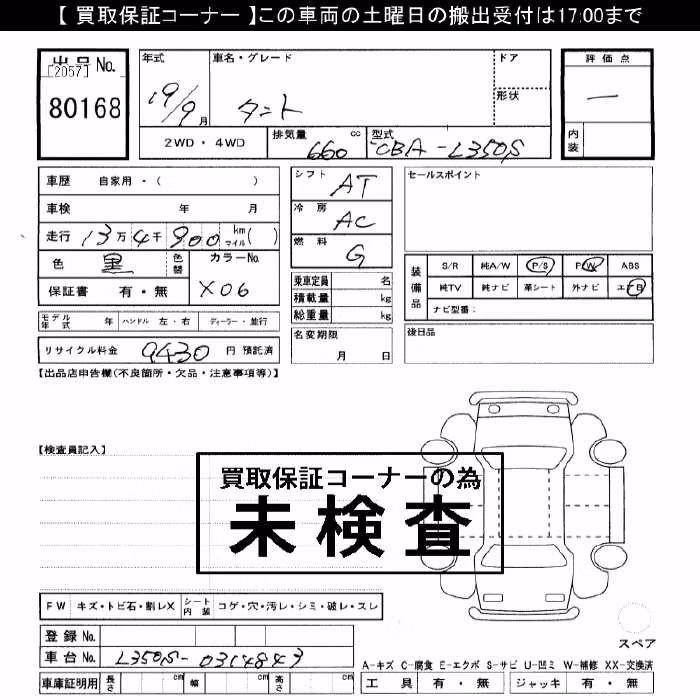 【 買取保証コーナー 】この車両の土曜日の搬出受付は17:00まで
出品 No.
[2057]
80168
年式
19/9 月
車名・グレード
タント
ドア
形状
評価点
―
内装
2WD・4WD
排気量 cc
660
型式
CBA-L350S
車歴 自家用・( )
車検 年 月
走行 13万 4千 900 km マイル( )
色 黒 色替
カラーNo.
X06
保証書 有・無
シフト
AT
冷房
AC
燃料
G
乗車定員 名
積載量 kg
総重量 kg
セールスポイント
装備品
S/R 純A/W P/S P/W ABS
純TV 純ナビ 革シート 外ナビ エアB
ナビ型番:
モデル年式 年 ハンドル 左・右 ディーラー・並行
名変期限
月 日
後日品
リサイクル料金 9430 円 預託済
【出品店申告欄(不良箇所・欠品・注意事項等)】
【検査員記入】
買取保証コーナーの為
未検査
FW キズ・トビ石・割レX シート内装 コゲ・穴・汚レ・シミ・破レ・スレ
スペア
登録 No.
車台 No. L350S-
A-キズ C-腐食 E-エクボ S-サビ U-凹ミ W-補修 XX-交換済
車庫証明用 長さ cm 幅 cm 高さ cm
工具 有・無 ジャッキ 有・無